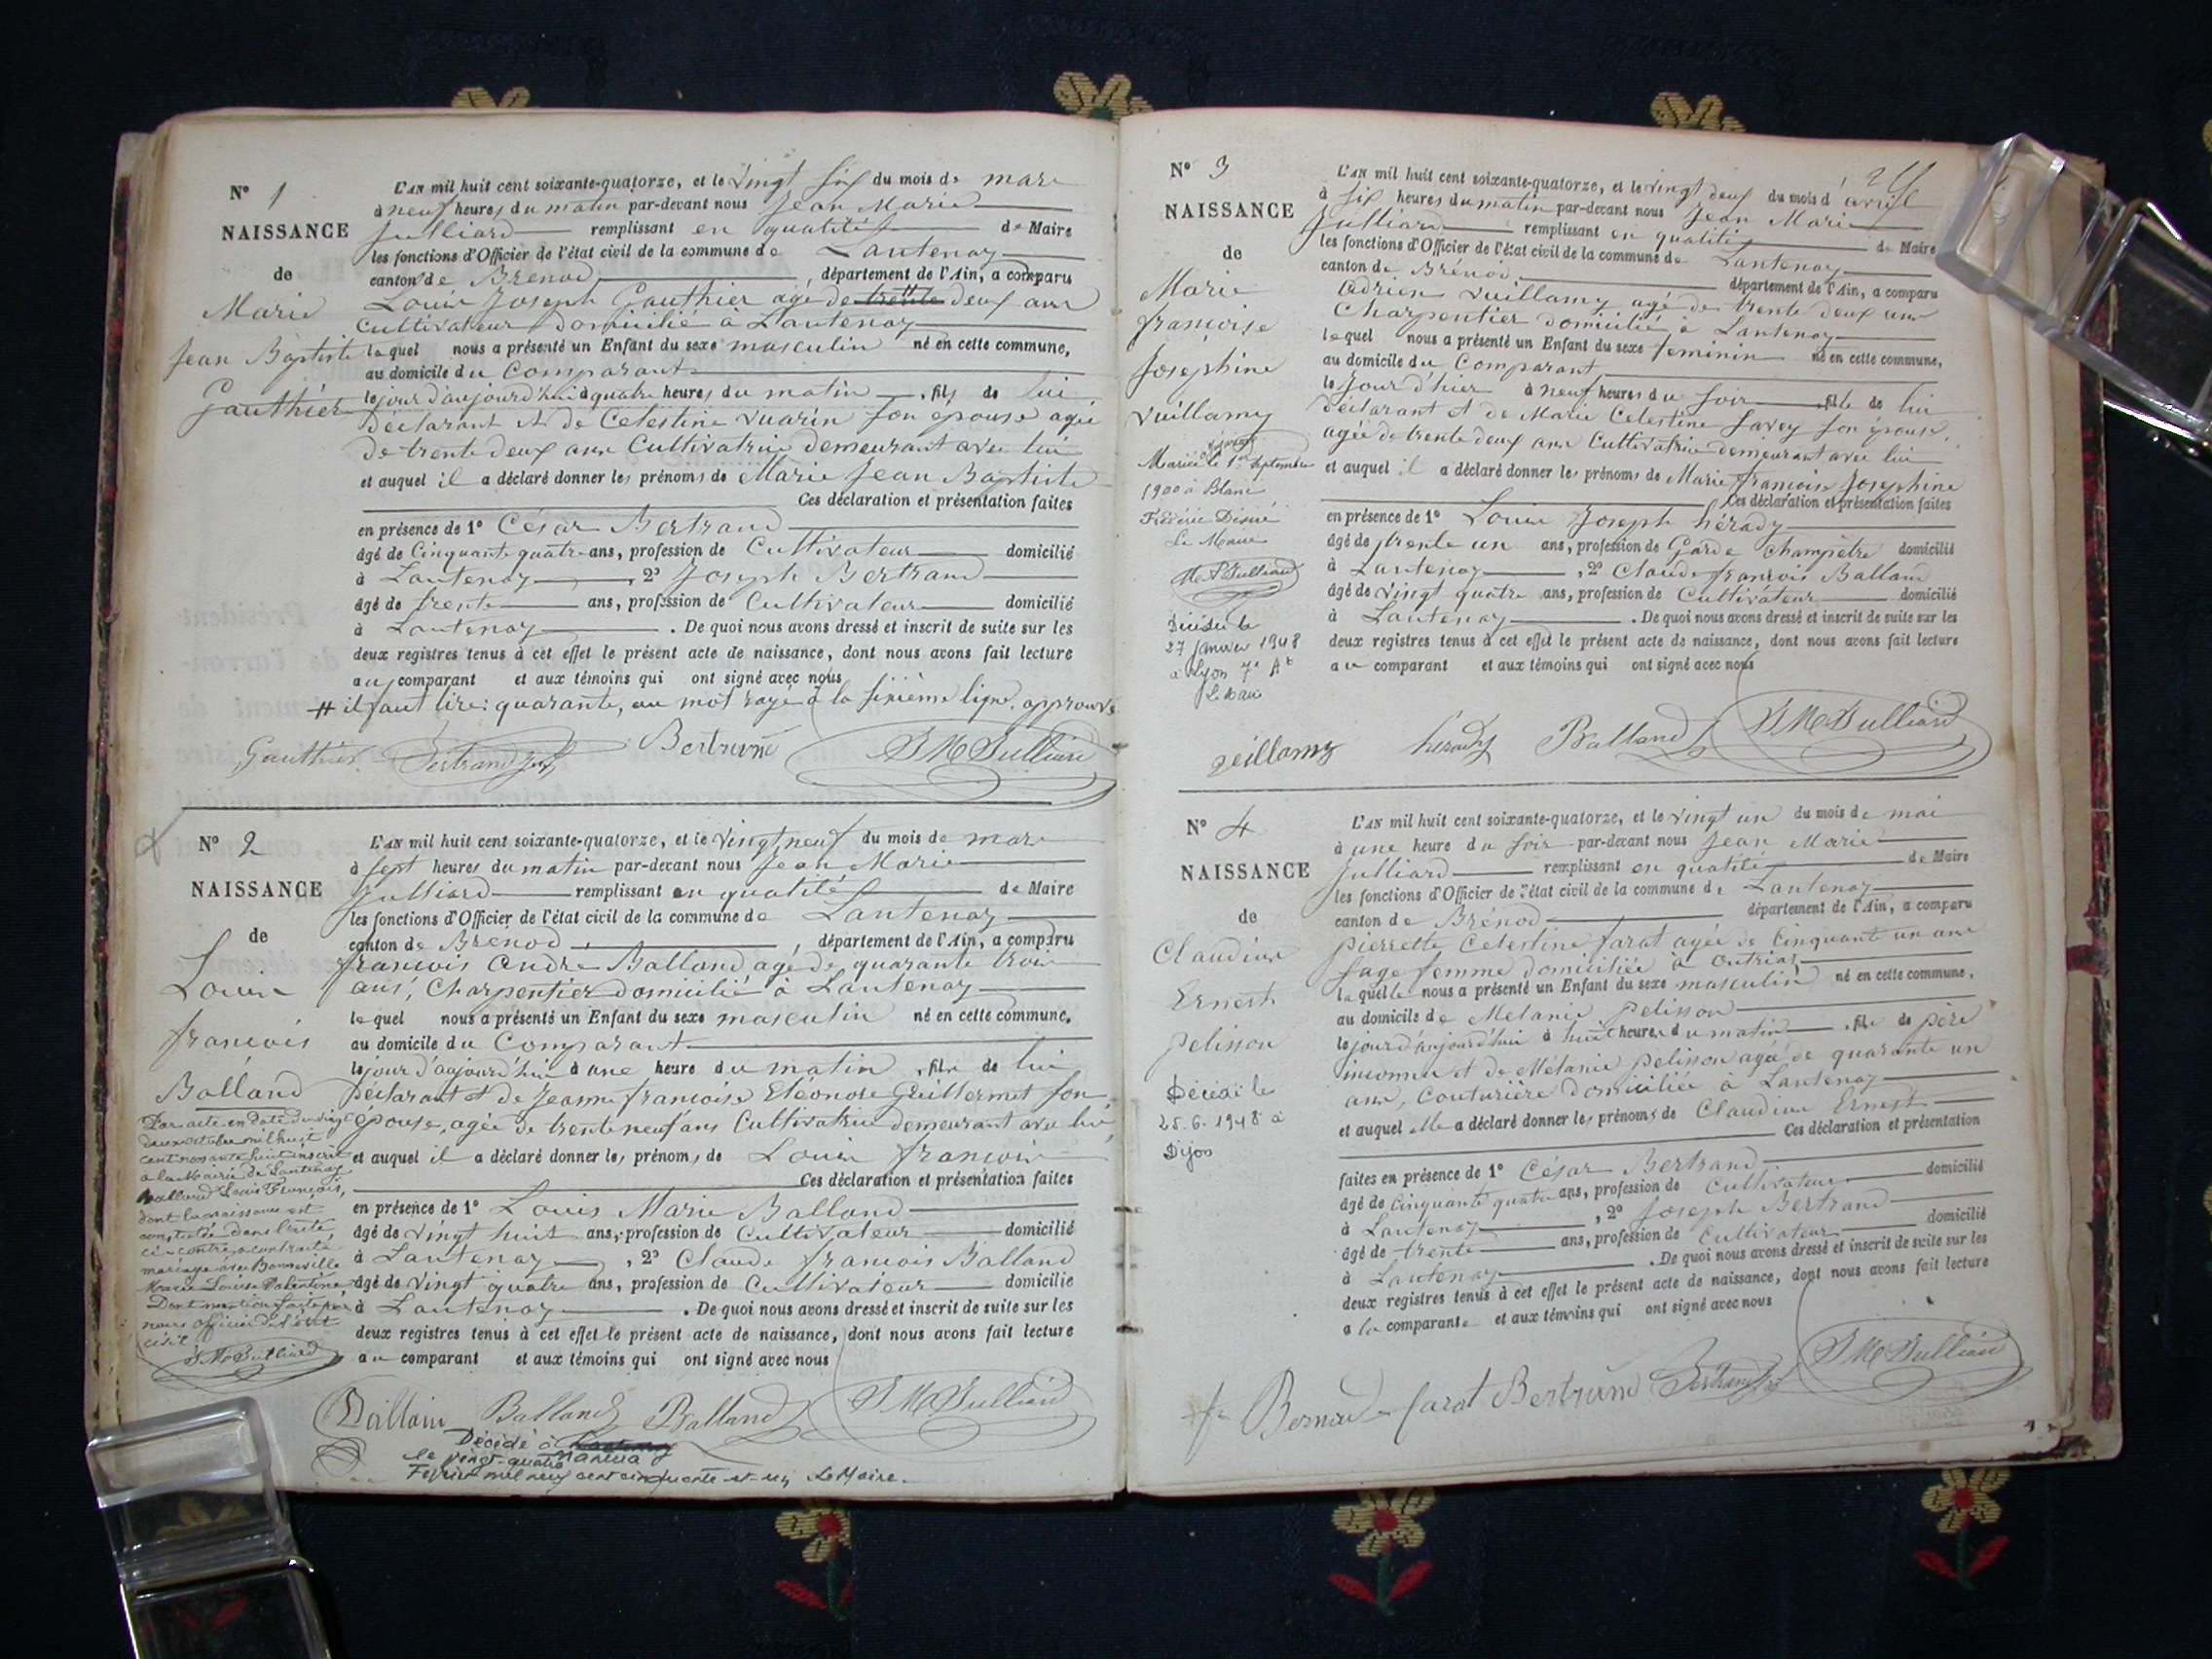 N° 1
NAISSANCE
de
Marie
Jean Baptiste
Gauthier
L'AN mil huit cent soixante-quatorze, et le vingt six du mois de mars
à neuf heures du matin par-devant nous Jean Marie
Julliard remplissant en qualité de Maire
les fonctions d'Officier de l'état civil de la commune de Lantenay
canton de Brénod, département de l'Ain, a comparu
Louis Joseph Gauthier agé de trente deux ans
cultivateur domicilié à Lantenay
lequel nous a présenté un Enfant du sexe masculin né en cette commune,
au domicile du Comparant
le jour d'aujourd'hui à quatre heures du matin, fils de lui
Déclarant et de Celestine Vuarin son épouse agée
de trente deux ans Cultivatrice demeurant avec lui
et auquel il a déclaré donner les prénoms de Marie Jean Baptiste
Ces déclaration et présentation faites
en présence de 1° César Bertrand
âgé de Cinquante quatre ans, profession de Cultivateur domicilié
à Lantenay, 2° Joseph Bertrand
âgé de trente ans, profession de Cultivateur domicilié
à Lantenay. De quoi nous avons dressé et inscrit de suite sur les
deux registres tenus à cet effet le présent acte de naissance, dont nous avons fait lecture
au comparant et aux témoins qui ont signé avec nous
# il faut lire: quarante, au mot rayé à la sixième ligne. approuvé
Gauthier Bertrand Bertrand J M Julliard
N° 2
NAISSANCE
de
Louis
françois
Balland
Par acte en date du vingt
deux octobre mil huit
cent nonante huit inscrit
à la Mairie de Lantenay
Balland Louis François,
dont la naissance est
constatée dans l'acte
ci-contre, a contracté
mariage avec Bonneville
Marie Louise Valentine
Dont mention faite par
nous officier de l'état
civil
J. M. Julliard
L'AN mil huit cent soixante-quatorze, et le vingt neuf du mois de mars
à sept heures du matin par-devant nous Jean Marie
Julliard remplissant en qualité de Maire
les fonctions d'Officier de l'état civil de la commune de Lantenay
canton de Brénod, département de l'Ain, a comparu
françois André Balland agé de quarante trois
ans, Charpentier domicilié à Lantenay
lequel nous a présenté un Enfant du sexe masculin né en cette commune,
au domicile du Comparant
le jour d'aujourd'hui à une heure du matin, fils de lui
Déclarant et de Jeanne françoise Eléonore Guillermet son
épouse, agée de trente neuf ans Cultivatrice demeurant avec lui,
et auquel il a déclaré donner les prénoms de Louis françois
Ces déclaration et présentation faites
en présence de 1° Louis Marie Balland
âgé de vingt huit ans, profession de Cultivateur domicilié
à Lantenay, 2° Claude françois Balland
âgé de vingt quatre ans, profession de Cultivateur domicilié
à Lantenay. De quoi nous avons dressé et inscrit de suite sur les
deux registres tenus à cet effet le présent acte de naissance, dont nous avons fait lecture
au comparant et aux témoins qui ont signé avec nous
Balland Balland J M Julliard
Décédé à
le vingt-quatre Nantua
Février mil neuf cent cinquante-et-un Le Maire.
N° 3
NAISSANCE
de
Marie
françoise
Josephine
Vuillamy
Mariée à
le 1er Septembre
1900 à Blanc
Frédéric Désiré
Le Maire
J M Julliard
Décédée le
27 janvier 1948
à Lyon 7e At
Le Maire
L'AN mil huit cent soixante-quatorze, et le vingt deux du mois d'avril
à six heures du matin par-devant nous Jean Marie
Julliard remplissant en qualité de Maire
les fonctions d'Officier de l'état civil de la commune de Lantenay
canton de Brénod département de l'Ain, a comparu
Adrien Vuillamy agé de trente deux ans
Charpentier domicilié à Lantenay
lequel nous a présenté un Enfant du sexe féminin né en cette commune,
au domicile du Comparant
le Jour d'hier à neuf heures du soir fille de lui
Déclarant et de Marie Celestine Savey son épouse,
agée de trente deux ans Cultivatrice demeurant avec lui
et auquel il a déclaré donner les prénoms de Marie françoise Josephine
Ces déclaration et présentation faites
en présence de 1° Louis Joseph hérady
âgé de trente un ans, profession de Garde champêtre domicilié
à Lantenay, 2° Claude françois Balland
âgé de vingt quatre ans, profession de Cultivateur domicilié
à Lantenay. De quoi nous avons dressé et inscrit de suite sur les
deux registres tenus à cet effet le présent acte de naissance, dont nous avons fait lecture
au comparant et aux témoins qui ont signé avec nous
hérady Balland J M Julliard
N° 4
NAISSANCE
de
Claudius
Ernest
pelisson
Décédé le
25.6.1948 à
Dijon
L'AN mil huit cent soixante-quatorze, et le vingt un du mois de mai
à une heure du soir par-devant nous Jean Marie
Julliard remplissant en qualité de Maire
les fonctions d'Officier de l'état civil de la commune de Lantenay
canton de Brénod département de l'Ain, a comparu
pierrette Celestine farat agée de Cinquante un ans
sage femme domiciliée à Outriaz
laquelle nous a présenté un Enfant du sexe masculin né en cette commune,
au domicile de Melanie pelisson
le jour d'aujourd'hui à huit heures du matin, fils de père
inconnu et de Mélanie pelisson agée de quarante un
ans, Couturière domiciliée à Lantenay
et auquel elle a déclaré donner les prénoms de Claudius Ernest
Ces déclaration et présentation
faites en présence de 1° César Bertrand domicilié
âgé de Cinquante quatre ans, profession de cultivateur
à Lantenay, 2° Joseph Bertrand
âgé de trente ans, profession de Cultivateur domicilié
à Lantenay. De quoi nous avons dressé et inscrit de suite sur les
deux registres tenus à cet effet le présent acte de naissance, dont nous avons fait lecture
a la comparante et aux témoins qui ont signé avec nous
fe Bernard farat Bertrand Bertrand J M Julliard